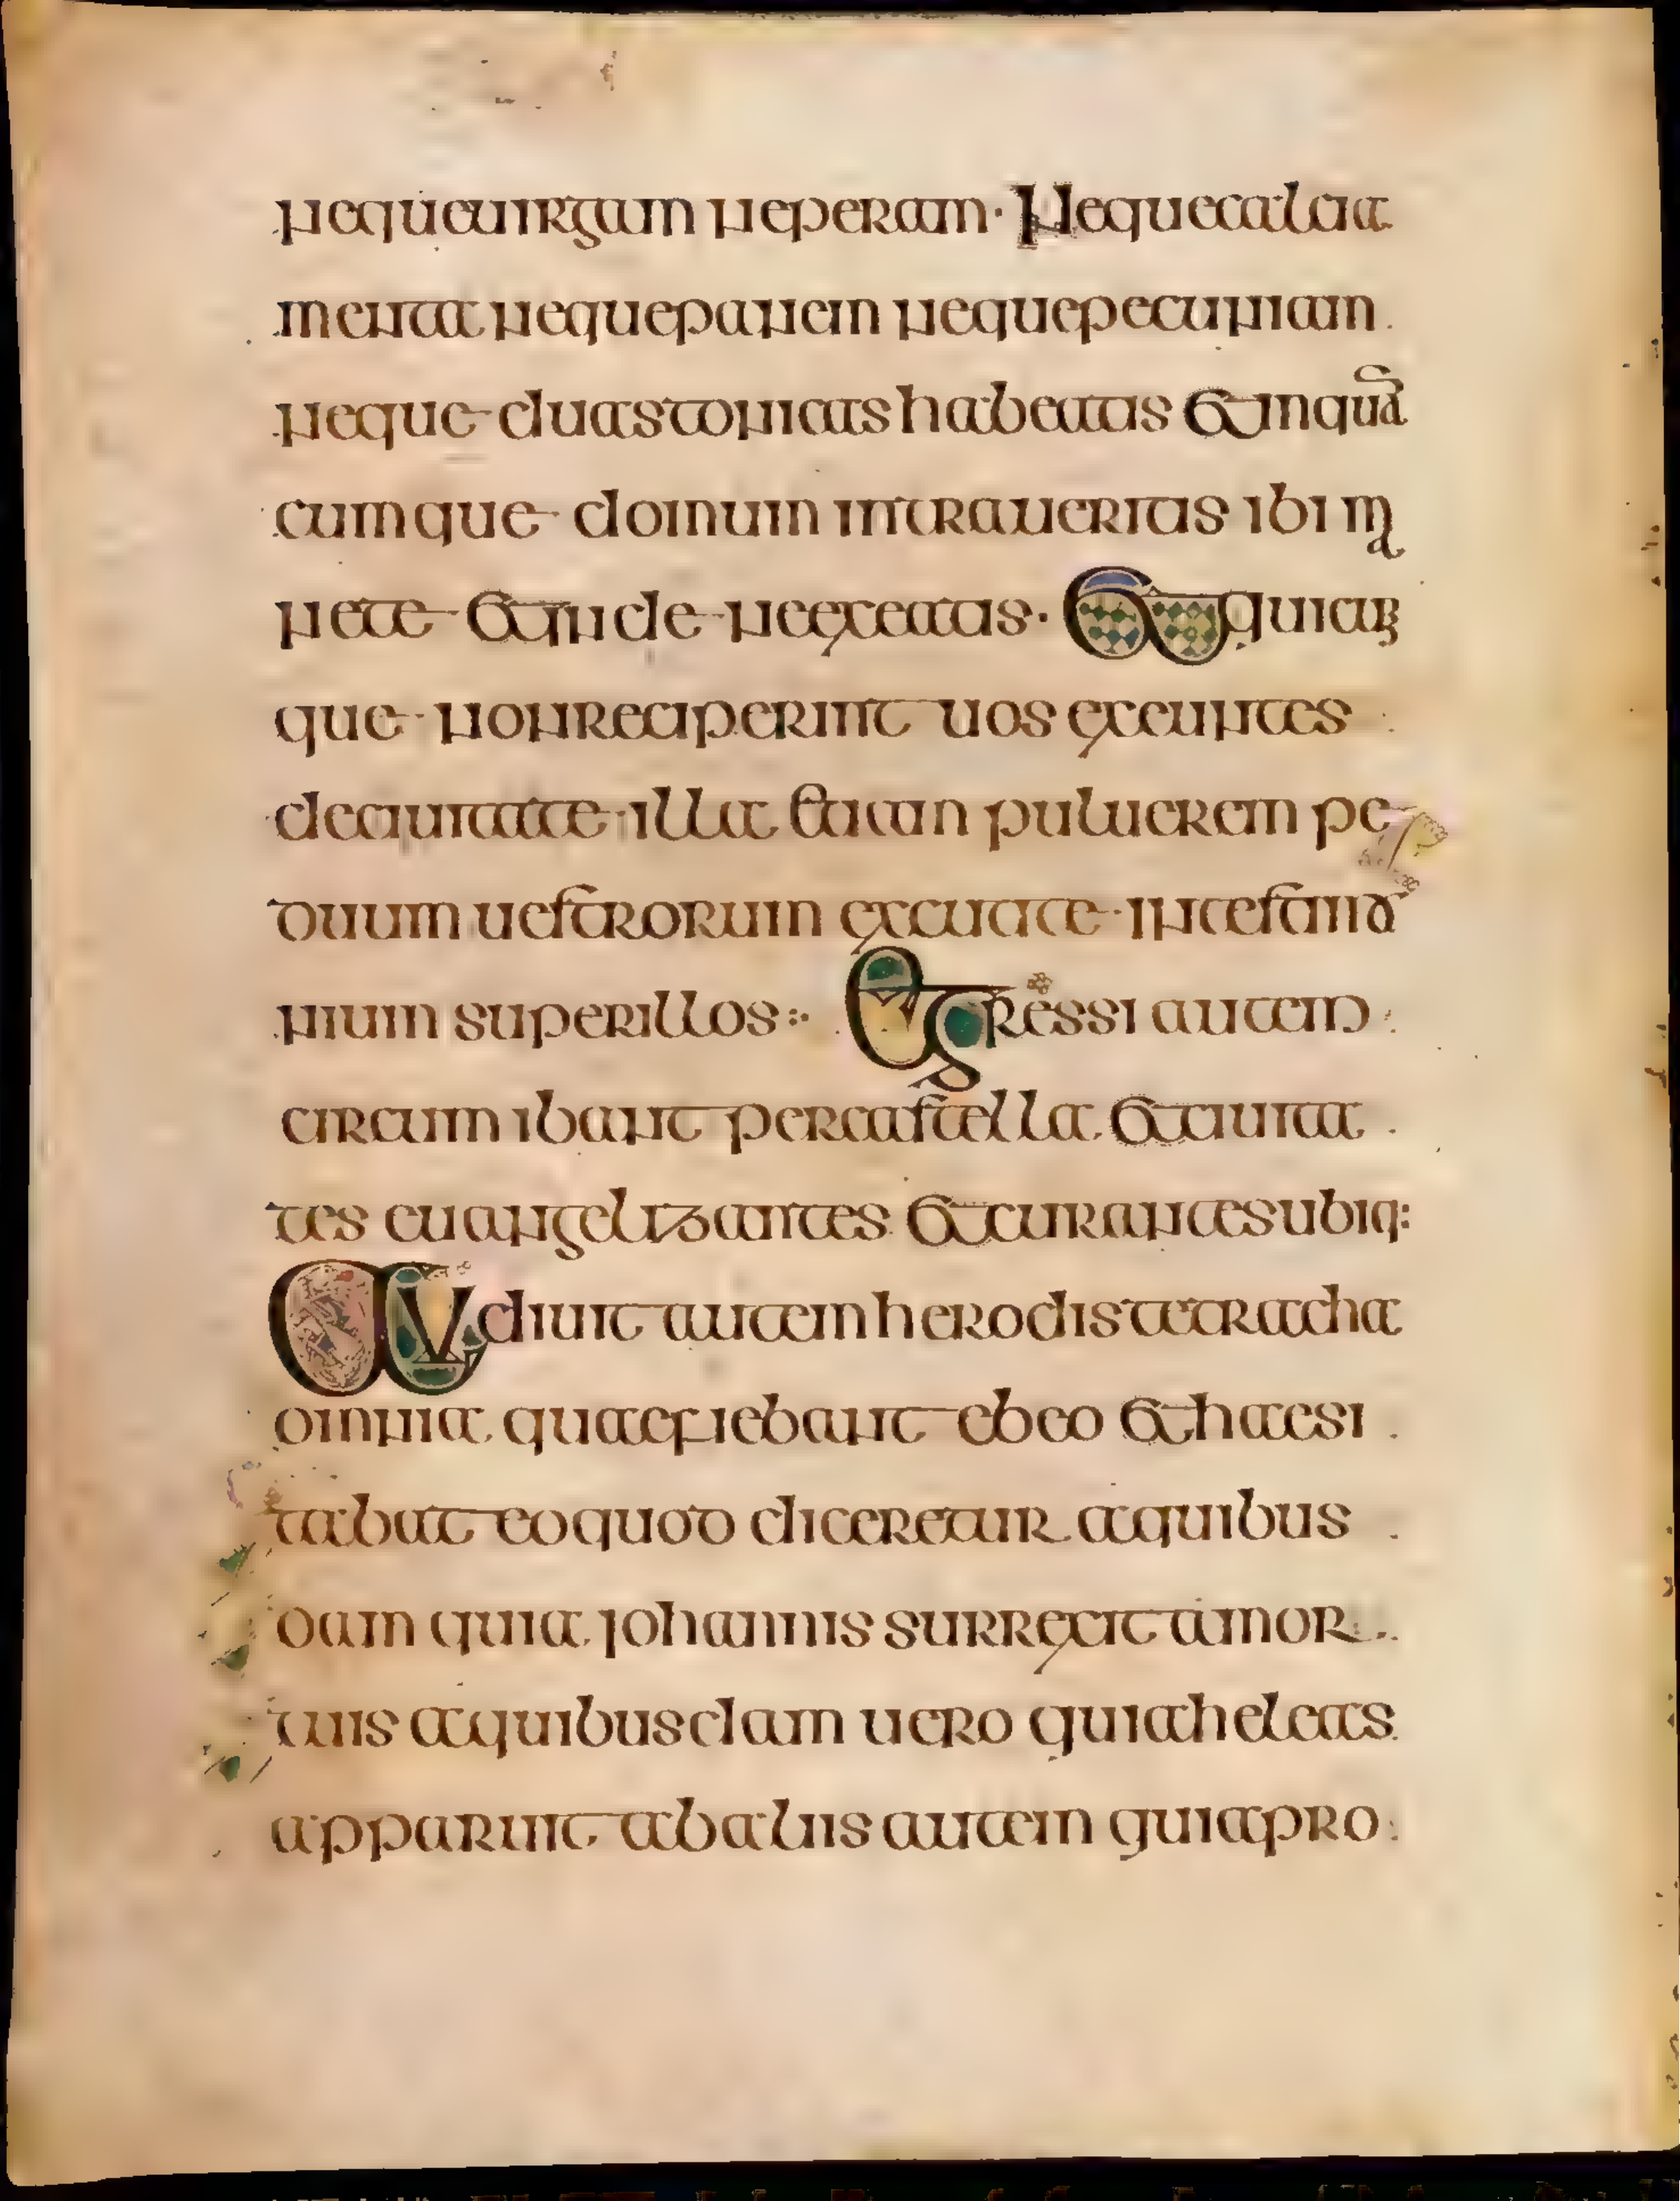 nequeuirgam neperam· Nequecalcia
menta nequepanem nequepecuniam
neque duastonicas habeatis etinquā
cumque domum intraueritis ibi ma
nete et inde neexeatis· Et quicū
que nonreciperint uos exeuntes
deciuitate illa etiam puluerem pe
dum uestrorum excutite intestimo
nium superillos:· Egressi autem
circum ibant percastella et ciuita
tes euangelizantes et curantes ubiq:
Audiuit autem herodis tetracha
omnia quaefiebant ebeo et haesi
tabat eoquod diceretur aquibus
dam quia iohannis surrexit amor
tuis aquibusdam uero quia heleas
apparuit abaliis autem quiapro